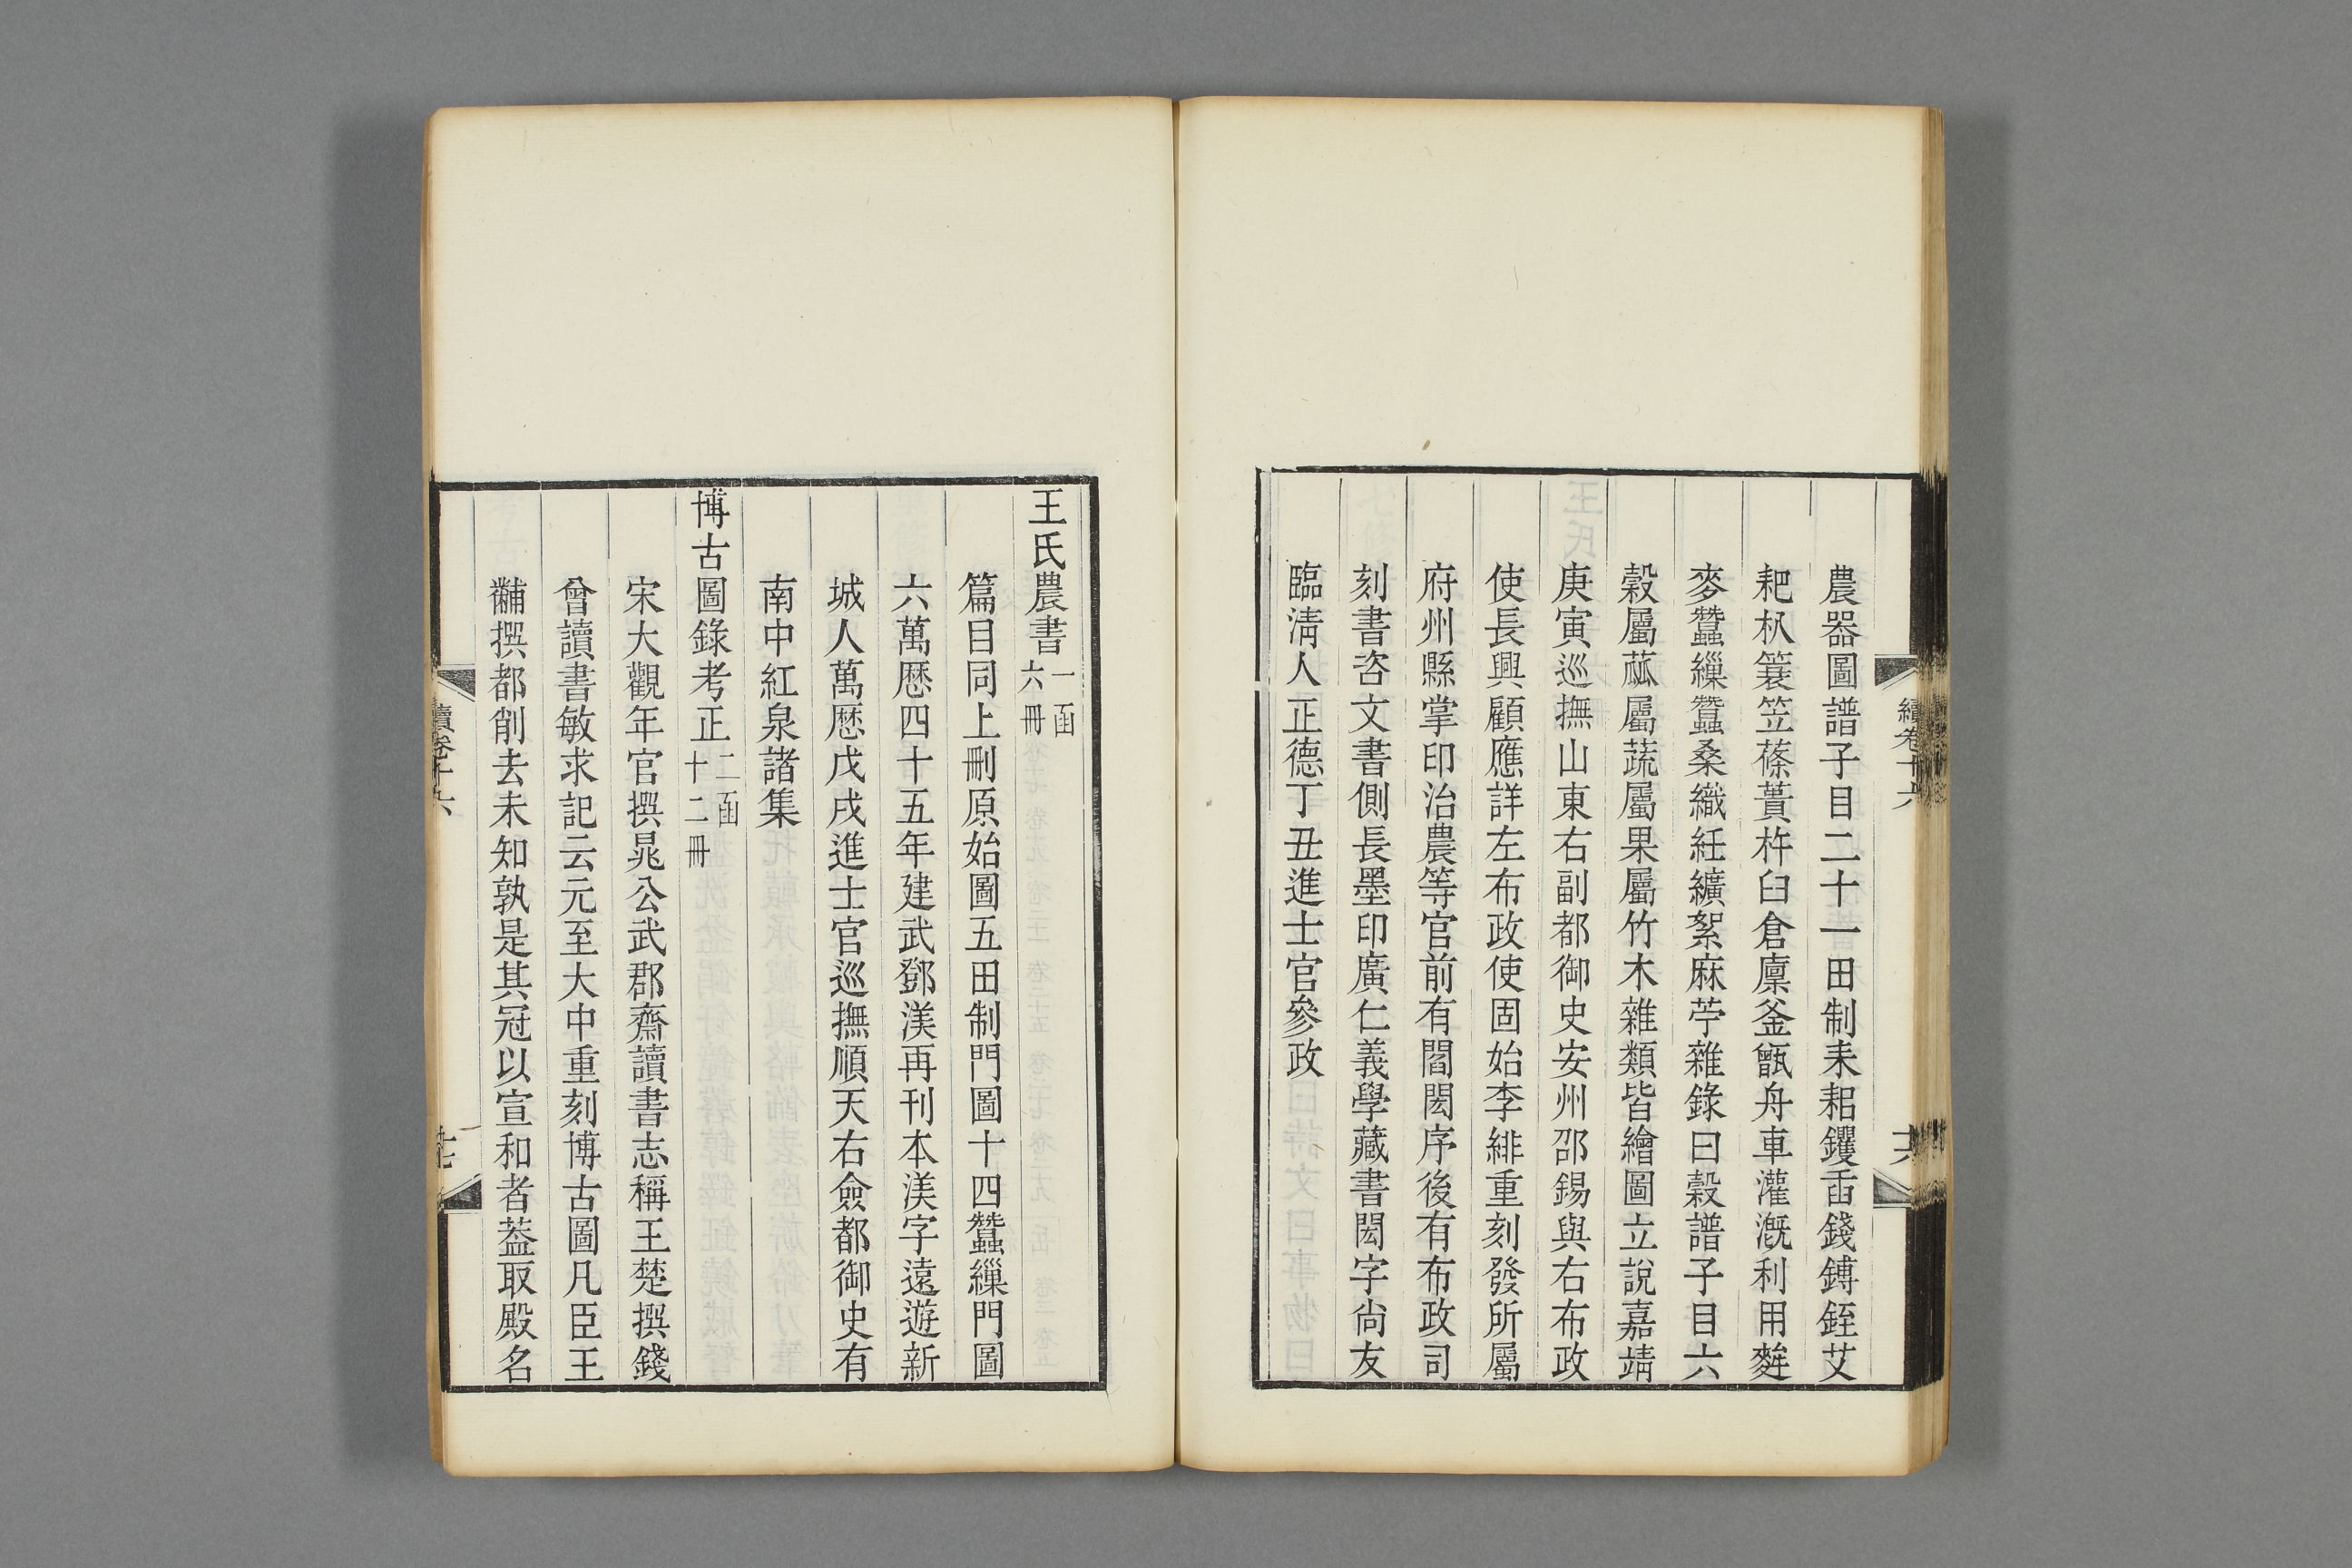 農器圖譜子目二十一田制耒耜钁臿錢鎛銍艾
耙朳簑笠蓧蕢杵臼倉廩釜甑舟車灌漑利用麰
麥蠶繅蠶桑織紝纊絮麻苧雜錄曰穀譜子目六
穀屬蓏屬蔬屬果屬竹木雜類皆繪圖立說嘉靖
庚寅巡撫山東右副都御史安州邵錫與右布政
使長興顧應詳左布政使固始李緋重刻發所屬
府州縣掌印治農等官前有閻閎序後有布政司
刻書咨文書側長墨印廣仁義學藏書閎字尙友
臨淸人正德丁丑進士官參政
續卷十六
十六
王氏農書一函六冊
篇目同上刪原始圖五田制門圖十四蠶繅門圖
六萬歷四十五年建武鄧渼再刊本渼字遠遊新
城人萬歷戊戌進士官巡撫順天右僉都御史有
南中紅泉諸集
博古圖錄考正二函十二冊
宋大觀年官撰晁公武郡齋讀書志稱王楚撰錢
曾讀書敏求記云元至大中重刻博古圖凡臣王
黼撰都削去未知孰是其冠以宣和者葢取殿名
續卷十六
十七